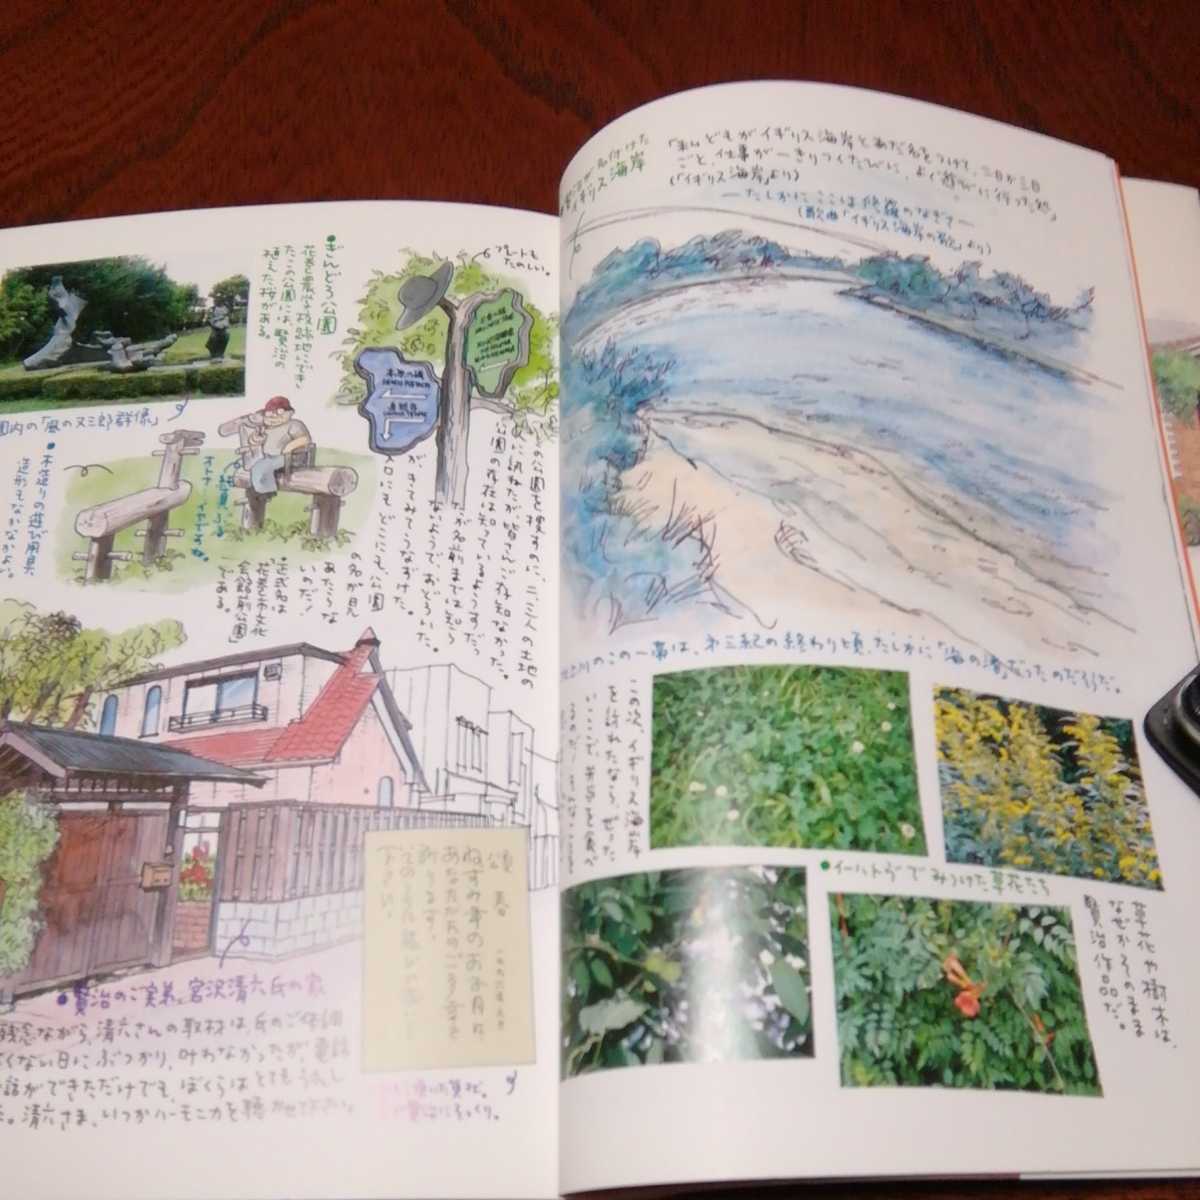 ●ぎんどろ公園
花巻農学校跡地にでき
たこの公園には、賢治の
植えた桜がある。
プレートも
たのしい。
園内の「風の又三郎群像」
●木造りの遊び用具
造形もなかなかよい。
の公園を捜すのに、二、三人の土地の
に訊ねたが皆さんご存知なかった。
公園の存在は知っているようすだっ
たが名前までは知ら
ないようで、おどろいた。
が、きてみてうなずけた。
入口にもどこにも、公園
の名が見
あたらな
いのだ!
●正式名は
花巻市文化
会館前公園
である。
頌春
ねずみ年のお正月に
あなたがたのご多幸を
祈ります。
下さい。
●賢治のご実弟、宮沢清六氏の家
残念ながら、清六さんの取材は、氏のご体調
くない日にぶつかり、叶わなかったが、電話
話ができただけでも、ぼくらはとてもうれし
清六さま、いつかハーモニカを聴かせて下さい。
賢治が名付けた
イギリス海岸
「私どもがイギリス海岸とあだ名をつけて、二日か三日
ごと、仕事が一きりつくたびに、よく遊びに行った処」
(「イギリス海岸」より)
―たしかにここは修羅のなぎさ―
(歌曲「イギリス海岸の歌」より)
北上川のこの一帯は、第三紀の終わり頃、たしかに「海の渚」だったのだそうだ。
この次、イギリス海岸
を訪れたなら、ぜった
いここで、弁当を食べ
るのだ!
●イーハトヴでみつけた草花たち
草花や樹木は、
なぜかそのまま
賢治作品だ。